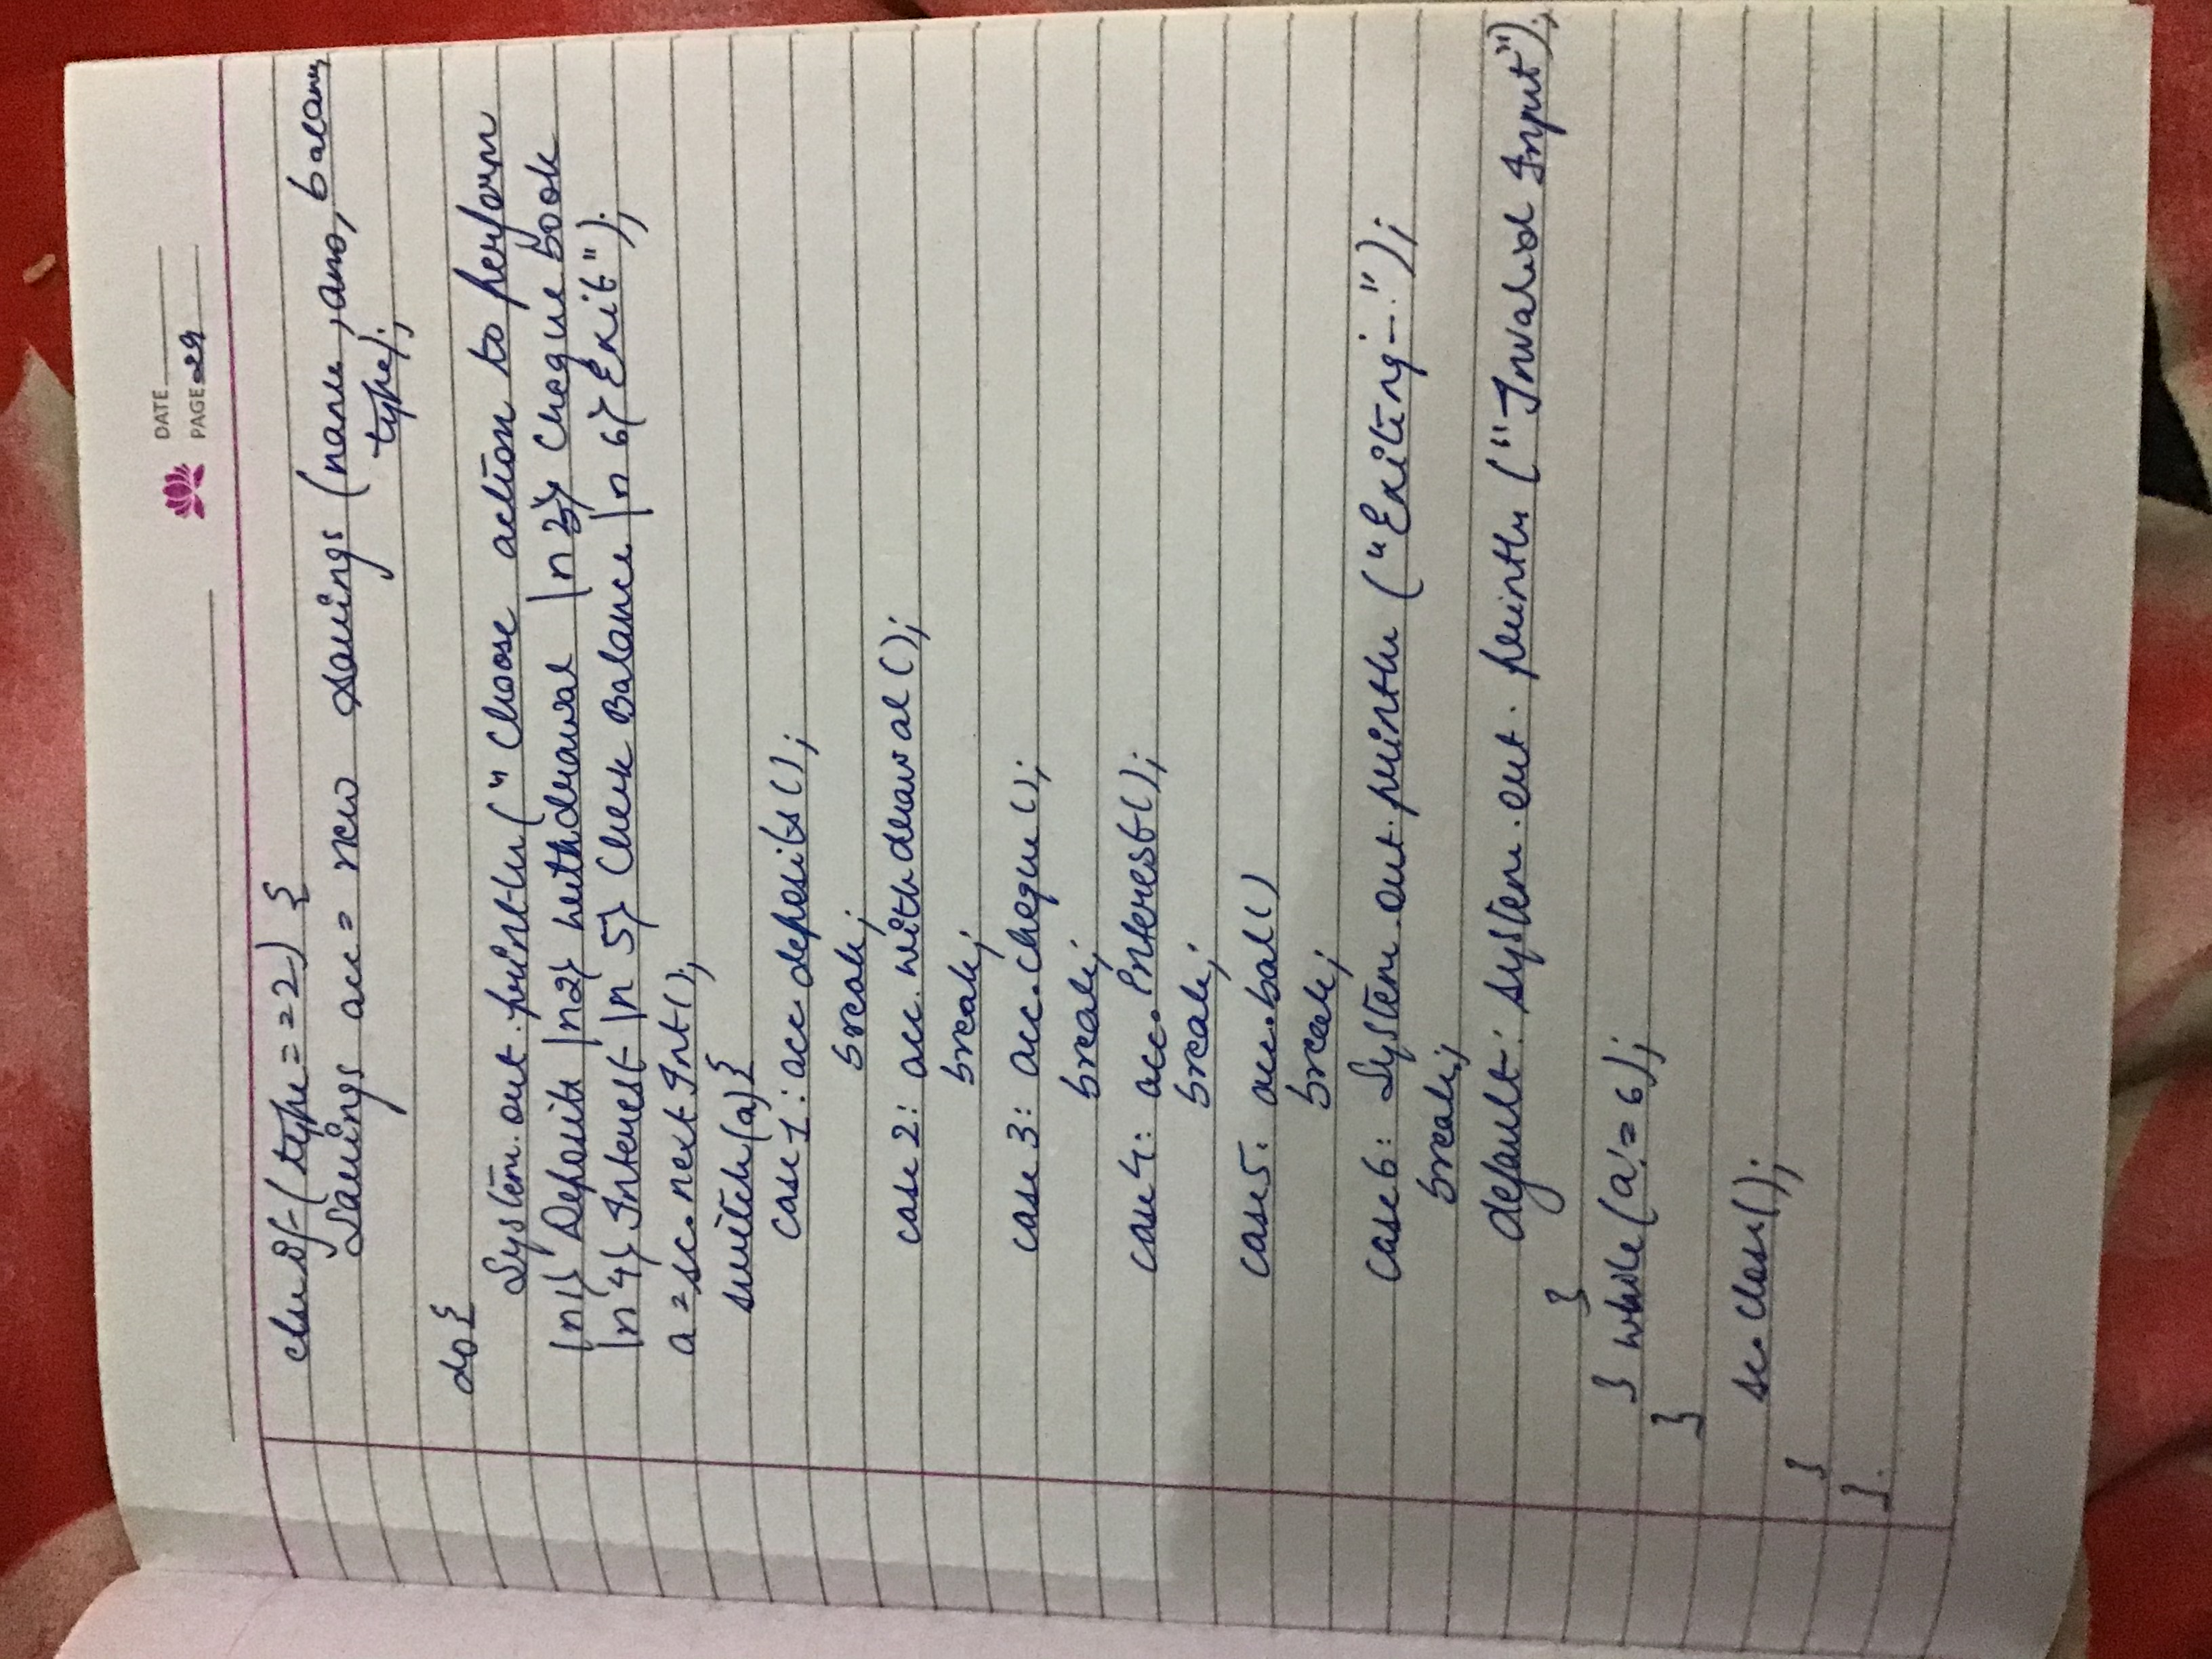 DATE
PAGE 29
else if (type==2) {
Savings acc = new savings (name, ano, balance,
type);
do{
System.out.println("Choose action to perform
\n1} Deposite \n2} withdrawal \n3} Cheque book
\n4} Interest \n 5} Check Balance \n 6} Exit");
a=sc.nextInt();
switch(a){
case 1: acc.deposits();
break;
case 2: acc.withdrawal();
break;
case 3: acc.cheque();
break;
case 4: acc.interest();
break;
case 5: acc.bal()
break;
case 6: System.out.println ("Exiting...");
break;
default: system.out.println ("Invalid Input");
}
} while(a!=6);
}
sc.close();
}
}.